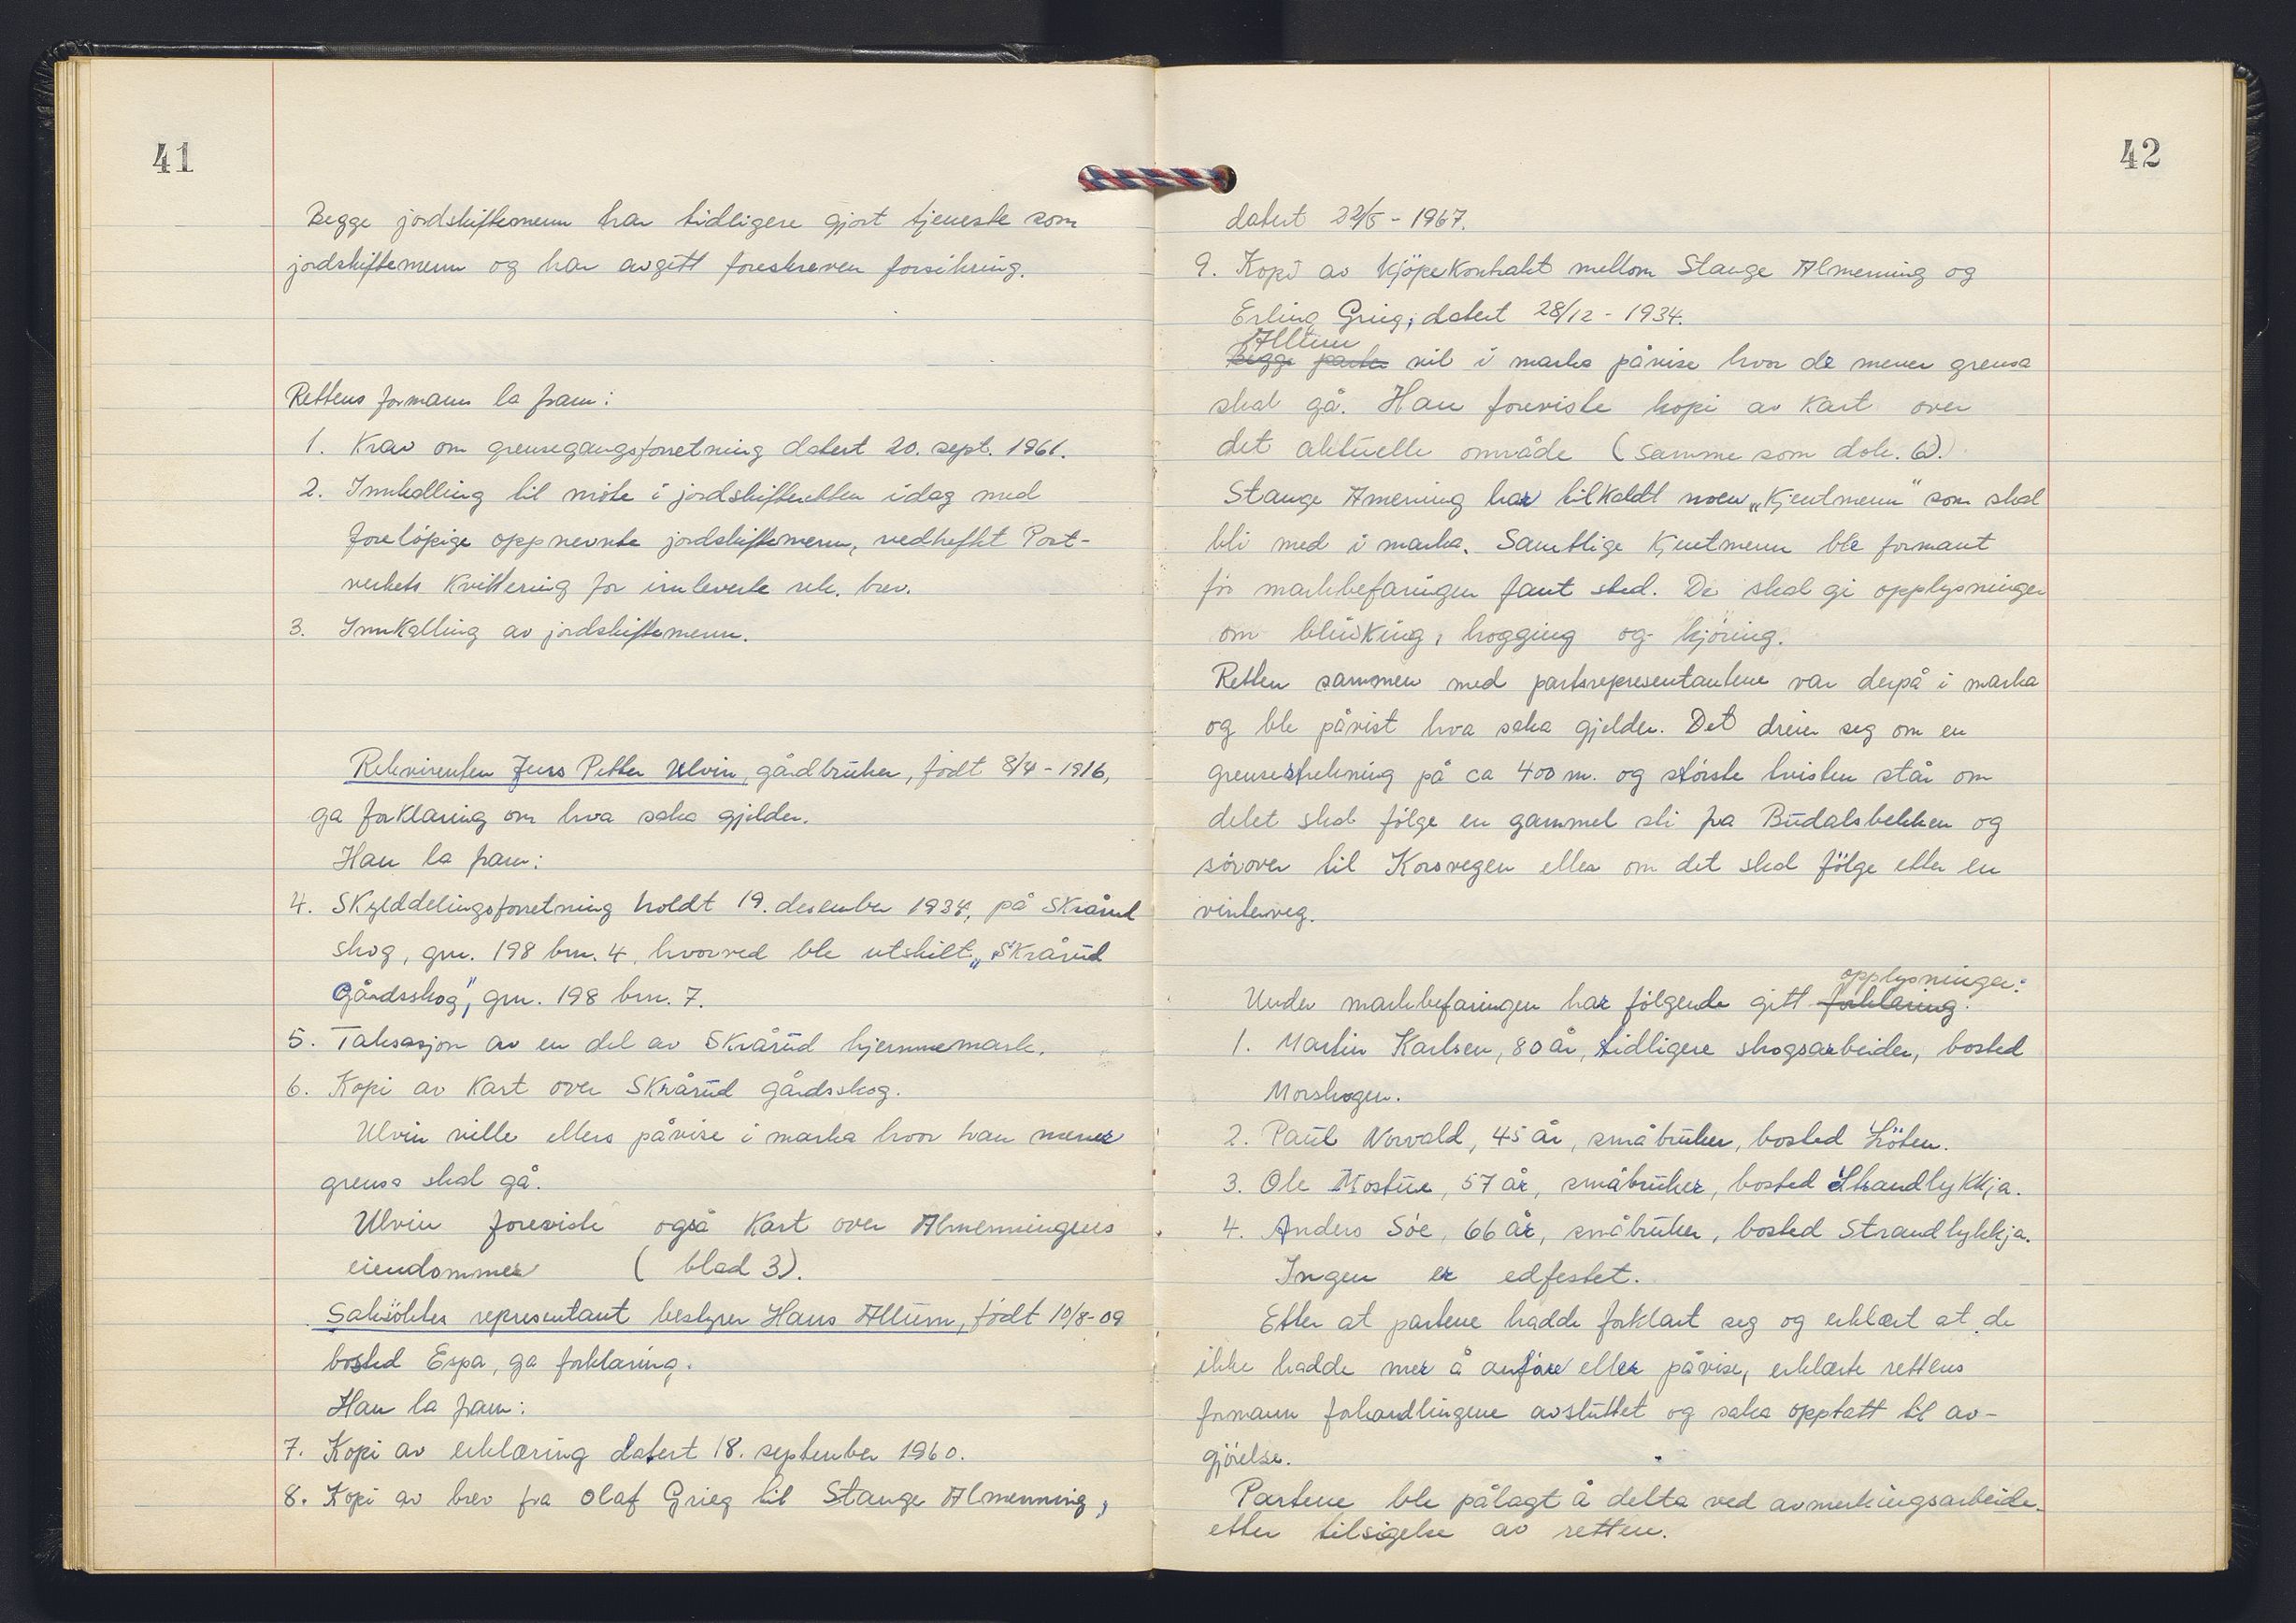 41
Begge jordskiftemenn har tidligere gjort tjeneste som
jordskiftemenn og har avgitt foreskreven forsikring.
Rettens formann la fram:
1. Krav om grensegangsforretning datert 20. sept. 1961.
2. Innkalling til møte i jordskifteretten idag med
foreløpige oppnevnte jordskiftemenn, vedheftet Post-
verkets kvittering for innleverte rek. brev.
3. Innkalling av jordskiftemenn.
Rekvirenten Jens Petter Ulvin, gårdbruker, født 8/4-1916,
ga forklaring om hva saka gjelder.
Han la fram:
4. Skylddelingsforretning holdt 19. desember 1934, på Skrårud
skog, gnr. 198 bnr. 4, hvorved ble utskilt „Skrårud
Gårdsskog", gnr. 198 bnr. 7.
5. Taksasjon av en del av Skrårud hjemmemark.
6. Kopi av kart over Skrårud gårdsskog.
Ulvin ville ellers påvise i marka hvor han mener
grensa skal gå.
Ulvin foreviste også kart over Almenningens
eiendommer ( blad 3).
Saksøktes representant bestyrer Hans Alltum, født 10/8-09
bosted Espa, ga forklaring.
Han la fram:
7. Kopi av erklæring datert 18. september 1960.
8. Kopi av brev fra Olaf Grieg til Stange Almenning,
42
datert 22/5-1967.
9. Kopi av kjøpekontrakt mellom Stange Almenning og
Erling Grieg, datert 28/12-1934.
Alltum
Begge parter vil i marka påvise hvor de mener grensa
skal gå. Han foreviste kopi av kart over
det aktuelle område (samme som dok. 6).
Stange Amening har tilkaldt noen „Kjentmenn" som skal
bli med i marka. Samtlige Kjentmenn ble formant
før markbefaringen fant sted. De skal gi opplysninger
om blinking, hogging og kjøring.
Retten sammen med partsrepresentantene var derpå i marka
og ble påvist hva saka gjelder. Det dreier seg om en
grensestrekning på ca 400 m. og største tvisten står om
delet skal følge en gammel sti fra Budalsbekken og
sørover til Korsvegen eller om det skal følge etter en
vinterveg.
opplysninger:
Under markbefaringen har følgende gitt forklaring:
1. Martin Karlsen, 80 år, tidligere skogsarbeider, bosted
Morskogen.
2. Paul Norvald, 45 år, småbruker, bosted Løten.
3. Ole Mostue, 57 år, småbruker, bosted Strandlykkja.
4. Anders Søe, 66 år, småbruker, bosted Strandlykkja.
Ingen er edfestet.
Etter at partene hadde forklart seg og erklært at de
ikke hadde mer å anføre eller påvise, erklærte rettens
formann forhandlingene avsluttet og saka opptatt til av-
gjørelse.
Partene ble pålagt å delta ved avmerkingsarbeide
etter tilsigelse av retten.